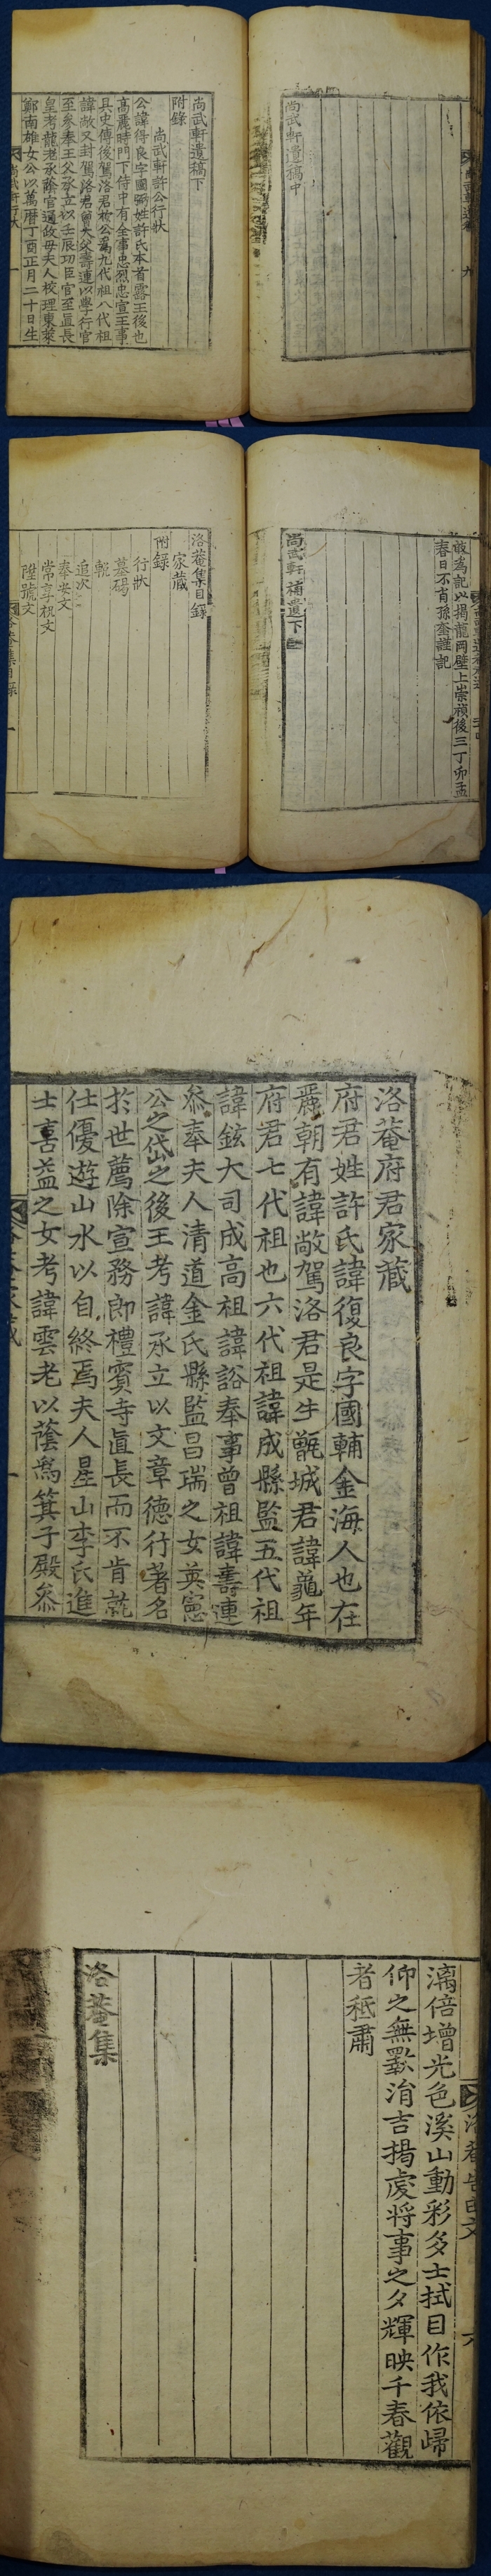 尚武軒遺稿中
九
尚武軒遺稿下
附錄
尚武軒許公行狀
公諱得良字國弼姓許氏本首露王後也
高麗時門下侍中有全事忠烈忠宣王事
具史傳後駕洛君於公爲九代祖八代祖
諱敞又封駕洛君曾大父壽連以學行官
至參奉王父承立以壬辰功臣官至直長
皇考龍老承蔭官通政母夫人校理東萊
鄭南雄女公以萬曆丁酉正月二十日生
尚武軒行狀
一
故爲記以揭龍岡壁上崇禎後三丁卯孟
春日不肖孫奎謹記
尚武軒補遺下
洛菴集目錄
家藏
附錄
行狀
墓碣
輓
追次
奉安文
常享祝文
陞號文
洛菴集目錄
一
洛菴府君家藏
府君姓許氏諱復良字國輔金海人也在
麗朝有諱敞駕洛君是生甑城君諱龜年
府君七代祖也六代祖諱成縣監五代祖
諱鉉大司成高祖諱谽奉事曾祖諱壽連
參奉夫人清道金氏縣監昌瑞之女英憲
公之岱之後王考諱承立以文章德行著名
於世薦除宣務郎禮賓寺直長而不肯就
仕優遊山水以自終焉夫人星山李氏進
士喜益之女考諱雲老以蔭爲箕子殿參
一
洛菴告由文
六
漓倍增光色溪山動彩多士拭目作我依歸
仰之無斁涓吉揭虔將事之夕輝映千春觀
者秖肅
洛菴集